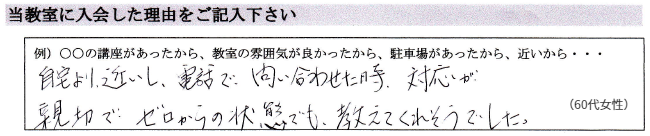 当教室に入会した理由をご記入下さい
例）〇〇の講座があったから、教室の雰囲気が良かったから、駐車場があったから、近いから・・・
自宅より近いし、電話で問い合わせた時、対応が
親切で ゼロからの状態でも、教えてくれそうでした。
（60代女性）